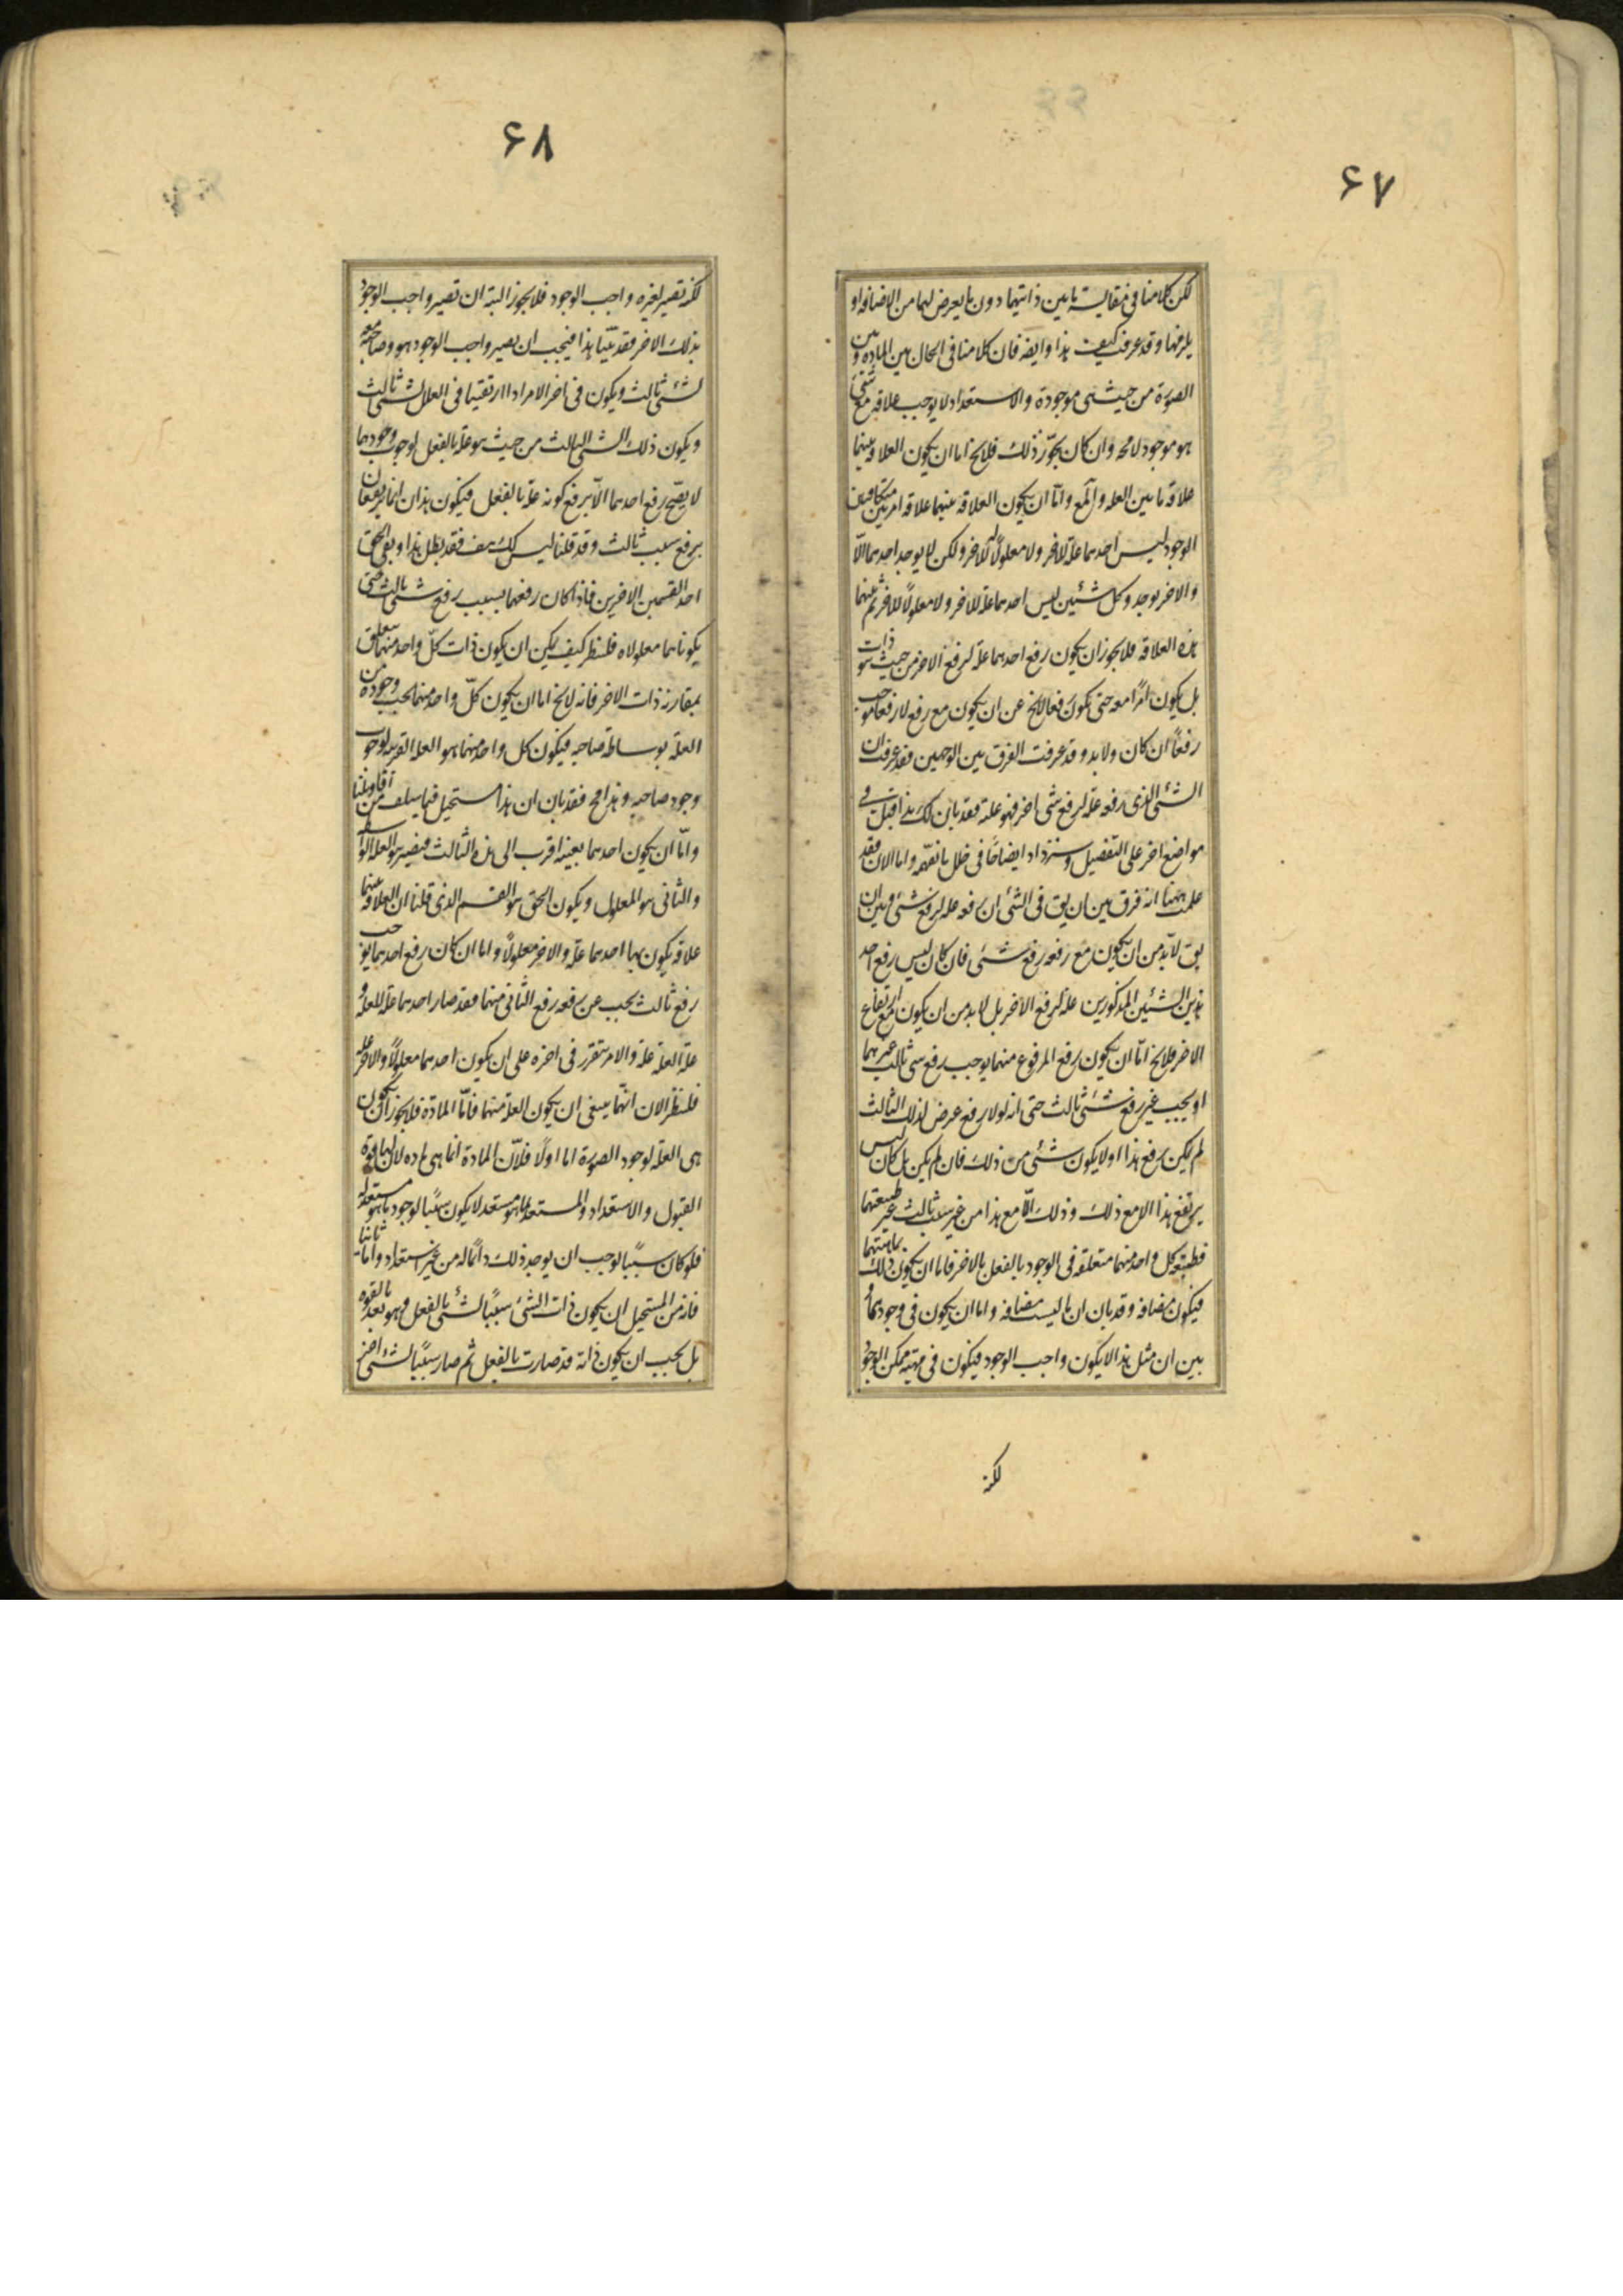 ۶۷
لكن كلامنا فى مقايسة ما بين ذاتيهما دون ما يعرض لهما من الاضافه او
يلزمها وقد عرفت كيفيت هذا وايضه فان كلامنا فى الحال بين الماده وبين
الصورة من حيث هى موجودة والاستعداد لا يوجب علاقه مع شئ
هو موجود لامحه وان كان يجوّز ذلك فلا يخ اما ان يكون العلاقه بينهما
علاقه ما بين العله والمع واما ان يكون العلاقه بينهما علاقه امرين متكافيين
الوجود ليس احدهما علة للاخر ولا معلولًا للاخر ولكن لا يوجد احدهما الّا
والاخر يوجد وكل شيئين ليس احدهما علة للاخر ولا معلولًا للاخر ثم بينهما
هذه العلاقه فلا يجوز ان يكون رفع احدهما علة لرفع الاخر من حيث هو ذات
بل يكون امرًا معه حتى يكون رفعا لا يخ عن ان يكون مع رفع لا رفعا موجب
رفعًا ان كان ولا بد وقد عرفت الفرق بين الوجهين فقد عرفت ان
الشئ الذى رفعه علة لرفع شى اخر فهو علته فقد بان لك هذا قبل فى
مواضع اخر على التفصيل وستزداد ايضاحًا فى خلل ما نفهّمه واما الان فقد
علمت ههنا انه فرق بين ان يق فى الشئ ان رفعه علة لرفع شئ وبين ان
يق لابد من ان يكون مع رفعه رفع شئ فان كان ليس رفع احد
هذين الشيئين المذكورين علة لرفع الاخر بل لا بد من ان يكون مع ارتفاع
الاخر فلا يخ امّا ان يكون رفع المرفوع منهما يوجب رفع شى ثالث غيرهما
او يجب عن رفع شئ ثالث حتى انه لولا رفع عرض لذلك الثالث
لم يكن رفع هذا او لا يكون شئ من ذلك فان لم يكن بل كان ليس
يرتفع هذا الا مع ذلك وذلك الّا مع هذا من غير سبب ثالث غير طبيعتهما
فطبيعه كل واحد منهما متعلقه فى الوجود بالفعل بالاخر فاما ان يكون ذلك لماهيتهما
فيكون مضافه وقد بان ان ما ليست مضافه واما ان يكون فى وجودهما و
بين ان مثل هذا لا يكون واجب الوجود فيكون فى مهيته ممكن الوجود
لكنه
۶۸
لكنه تصير لغيره واجب الوجود فلا يجوز البته ان تصير واجب الوجود
بذلك الاخر فقد بيّنا هذا فيجب ان يصير واجب الوجود هو وصاحبه معه
لشئ ثالث ويكون فى اخر الامر اذا ارتقينا فى العلل لشئ ثالث
ويكون ذلك الشئ الثالث من حيث هو علة بالفعل لوجوب وجودهما
لا يصّح رفع احدهما الّا برفع كونه علة بالفعل فيكون هذان انما يرفعان
برفع سبب ثالث وقد قلنا ليس كك هف فقد بطل هذا وبقى الحق
احد القسمين الاخرين فاذا كان رفعهما بسبب رفع شئ ثالث حتى
يكونا هما معلولاه فلننظر كيف يمكن ان يكون ذات كلّ واحد منهما يتعلق
بمقارنه ذات الاخر فانه لا يخ اما ان يكون كلّ واحد منهما يجب وجوده من
العلة بوساطة صاحبه فيكون كل واحد منهما هو العلة القريبه لوجوب
وجود صاحبه وهذا مح فقد بان ان هذا مستحيل فيما سلف من اقاويلنا
واما ان يكون احدهما بعينه اقرب الى هذه الثالث فيصير هو العلة الواسطه
والثانى هو المعلول ويكون الحق هو القسم الذى قلنا ان العلاقه بينهما
علاقه يكون بها احدهما علة والاخر معلولًا واما ان كان رفع احدهما يوجب
رفع ثالث يجب عن رفعه رفع الثانى منهما فقد صار احدهما علة العلة و
علة العلة علة والامر يتقرر فى اخره على ان يكون احدهما معلولًا والاخر علة
فلننظر الان ايّهما ينبغى ان يكون العلة منهما فامّا المادّة فلا يجوز ان يكون
هى العلة لوجود الصورة اما اولًا فلانّ المادة انما هى ماده لان لها قوة
القبول والاستعداد والمستعد بما هو مستعد لا يكون سببًا لوجود ما هو مستعد له
فلو كان سببًا لوجب ان يوجد ذلك دائما له من غير استعداد واما ثانيا
فانه من المستحيل ان يكون ذات الشئ سببًا لشئ بالفعل وهو بعد بالقوه
بل يجب ان يكون ذاته قد صارت بالفعل ثم صار سببًا لشئ اخر